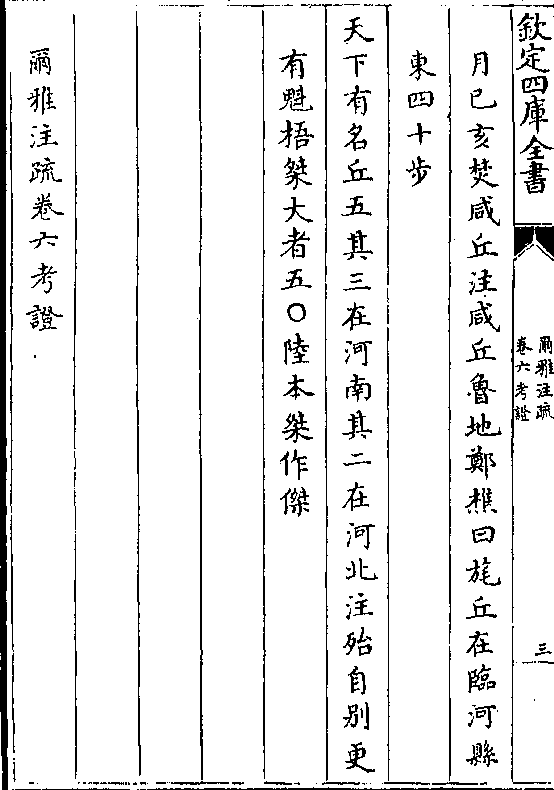 欽定四庫全書
爾雅注疏
卷六考證
三
月已亥焚咸丘注咸丘魯地鄭樵曰旄丘在臨河縣
東四十步
天下有名丘五其三在河南其二在河北注殆自别更
有魁梧桀大者五○陸本桀作傑
爾雅注疏卷六考證